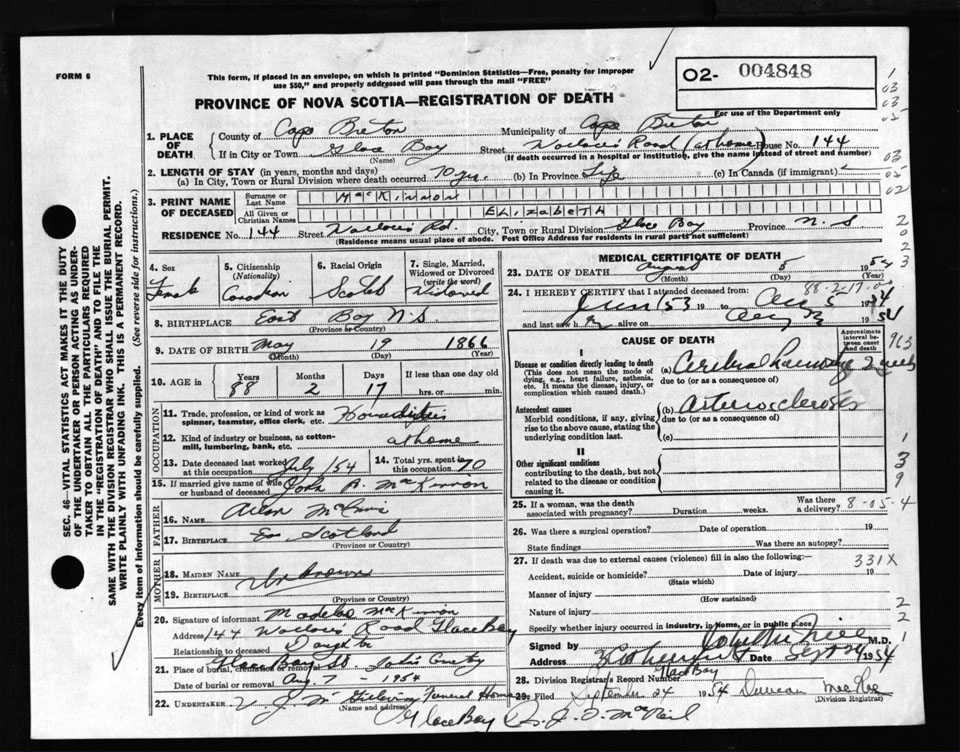 FORM 6
This form, if placed in an envelope, on which is printed "Dominion Statistics—Free, penalty for improper
use $50," and properly addressed will pass through the mail "FREE"
02- 004848
PROVINCE OF NOVA SCOTIA—REGISTRATION OF DEATH
For use of the Department only
1. PLACE OF DEATH County of Cape Breton Municipality of Cape Breton
If in City or Town Glace Bay Street Road (at home) House No. 144
(Name) (If death occurred in a hospital or institution, give the name instead of street and number)
2. LENGTH OF STAY (in years, months and days)
(a) In City, Town or Rural Division where death occurred 70 yr. (b) In Province Life (c) In Canada (if immigrant)
3. PRINT NAME OF DECEASED Surname or Last Name MacKinnon
All Given or Christian Names Elizabeth
RESIDENCE No. 144 Street Rd. City, Town or Rural Division Glace Bay Province N.S
(Residence means usual place of abode. Post Office Address for residents in rural parts not sufficient)
4. Sex Female
5. Citizenship (Nationality) Canadian
6. Racial Origin Scotch
7. Single, Married, Widowed or Divorced (write the word) Widowed
8. BIRTHPLACE East Bay N.S.
(Province or Country)
9. DATE OF BIRTH May 19 1866
(Month) (Day) (Year)
10. AGE in Years 88 Months 2 Days 17 If less than one day old hrs. or min.
OCCUPATION
11. Trade, profession, or kind of work as spinner, teamster, office clerk, etc.
12. Kind of industry or business, as cotton-mill, lumbering, bank, etc. at home
13. Date deceased last worked at this occupation July /54
14. Total yrs. spent in this occupation 70
15. If married give name of wife or husband of deceased John A. MacKinnon
FATHER
16. NAME
17. BIRTHPLACE Scotland
(Province or Country)
MOTHER
18. MAIDEN NAME Unknown
19. BIRTHPLACE
(Province or Country)
20. Signature of informant MacKinnon
Address 144 Road Glace Bay
Relationship to deceased
21. Place of burial, cremation or removal Glace Bay
Date of burial or removal Aug 7 - 1954
22. UNDERTAKER Funeral Home
(Name and address) Glace Bay
MEDICAL CERTIFICATE OF DEATH
23. DATE OF DEATH August 5 1954
(Month) (Day) (Year)
88-2-17-00
24. I HEREBY CERTIFY that I attended deceased from:
June 53 19 to Aug 5 1954
and last saw her alive on Aug 1954
CAUSE OF DEATH
Approximate interval between onset and death
I
Disease or condition directly leading to death
(This does not mean the mode of dying, e.g., heart failure, asthenia, etc. It means the disease, injury, or complication which caused death.)
(a) Cerebral
due to (or as a consequence of)
Antecedent causes
Morbid conditions, if any, giving rise to the above cause, stating the underlying condition last.
(b) Arteriosclerosis
due to (or as a consequence of)
(c)
II
Other significant conditions
contributing to the death, but not related to the disease or condition causing it.
25. If a woman, was the death associated with pregnancy? Duration weeks. Was there a delivery?
8-05-4
26. Was there a surgical operation? Date of operation 19
State findings Was there an autopsy?
27. If death was due to external causes (violence) fill in also the following:—
331X
Accident, suicide or homicide? Date of injury 19
(State which)
Manner of injury
(How sustained)
Nature of injury
Specify whether injury occurred in industry, in home, or in public place
Signed by M.D.
Address Date Sept 24 1954
28. Division Registrar's Record Number
Glace Bay
29. Filed September 24 1954 Duncan
(Division Registrar)
SEC. 46—VITAL STATISTICS ACT MAKES IT THE DUTY
OF THE UNDERTAKER OR PERSON ACTING AS UNDER-
TAKER TO OBTAIN ALL THE PARTICULARS REQUIRED
IN THE "REGISTRATION OF DEATH" AND TO FILE THE
SAME WITH THE DIVISION REGISTRAR WHO SHALL ISSUE THE BURIAL PERMIT.
WRITE PLAINLY WITH UNFADING INK. THIS IS A PERMANENT RECORD.
Every item of information should be carefully supplied. (See reverse side for instructions.)